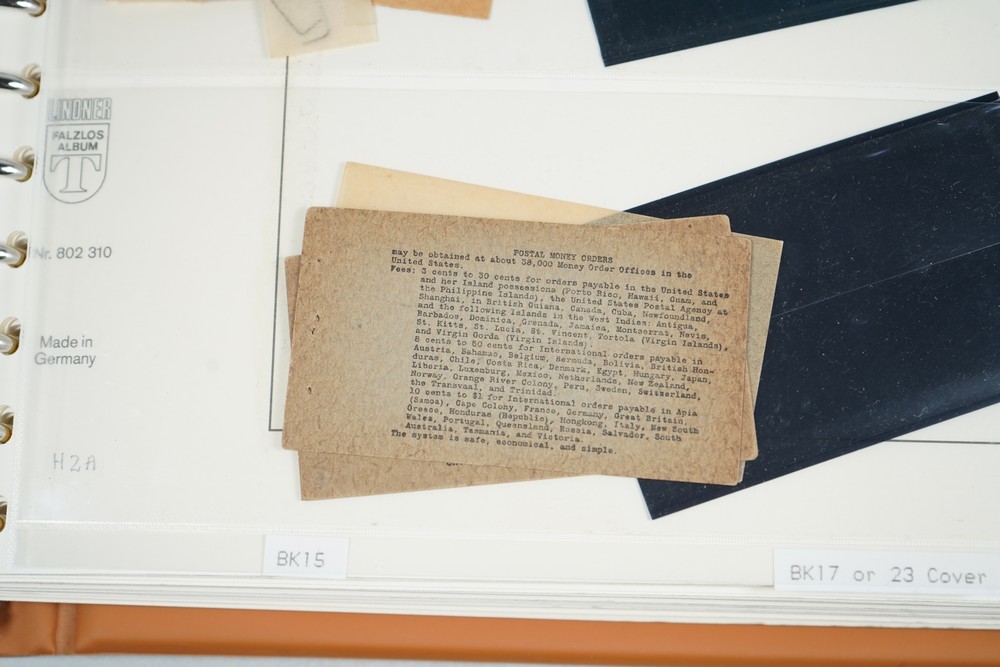 LINDNER
FALZLOS
ALBUM
T
Nr. 802 310
Made in
Germany
H2A
POSTAL MONEY ORDERS
may be obtained at about 38,000 Money Order Offices in the
United States.
Fees: 3 cents to 30 cents for orders payable in the United States
and her Island possessions (Porto Rico, Hawaii, Guam, and
the Philippine Islands), the United States Postal Agency at
Shanghai, in British Guiana, Canada, Cuba, Newfoundland,
and the following Islands in the West Indies: Antigua,
Barbados, Dominica, Grenada, Jamaica, Montserrat, Nevis,
St. Kitts, St. Lucia, St. Vincent, Tortola (Virgin Islands),
and Virgin Gorda (Virgin Islands).
8 cents to 50 cents for International orders payable in
Austria, Bahamas, Belgium, Bermuda, Bolivia, British Hon-
duras, Chile, Costa Rica, Denmark, Egypt, Hungary, Japan,
Liberia, Luxenburg, Mexico, Netherlands, New Zealand,
Norway, Orange River Colony, Peru, Sweden, Switzerland,
the Transvaal, and Trinidad.
10 cents to $1 for International orders payable in Apia
(Samoa), Cape Colony, France, Germany, Great Britain,
Greece, Honduras (Republic), Hongkong, Italy, New South
Wales, Portugal, Queensland, Russia, Salvador, South
Australia, Tasmania, and Victoria.
The system is safe, economical, and simple.
BK15
BK17 or 23 Cover